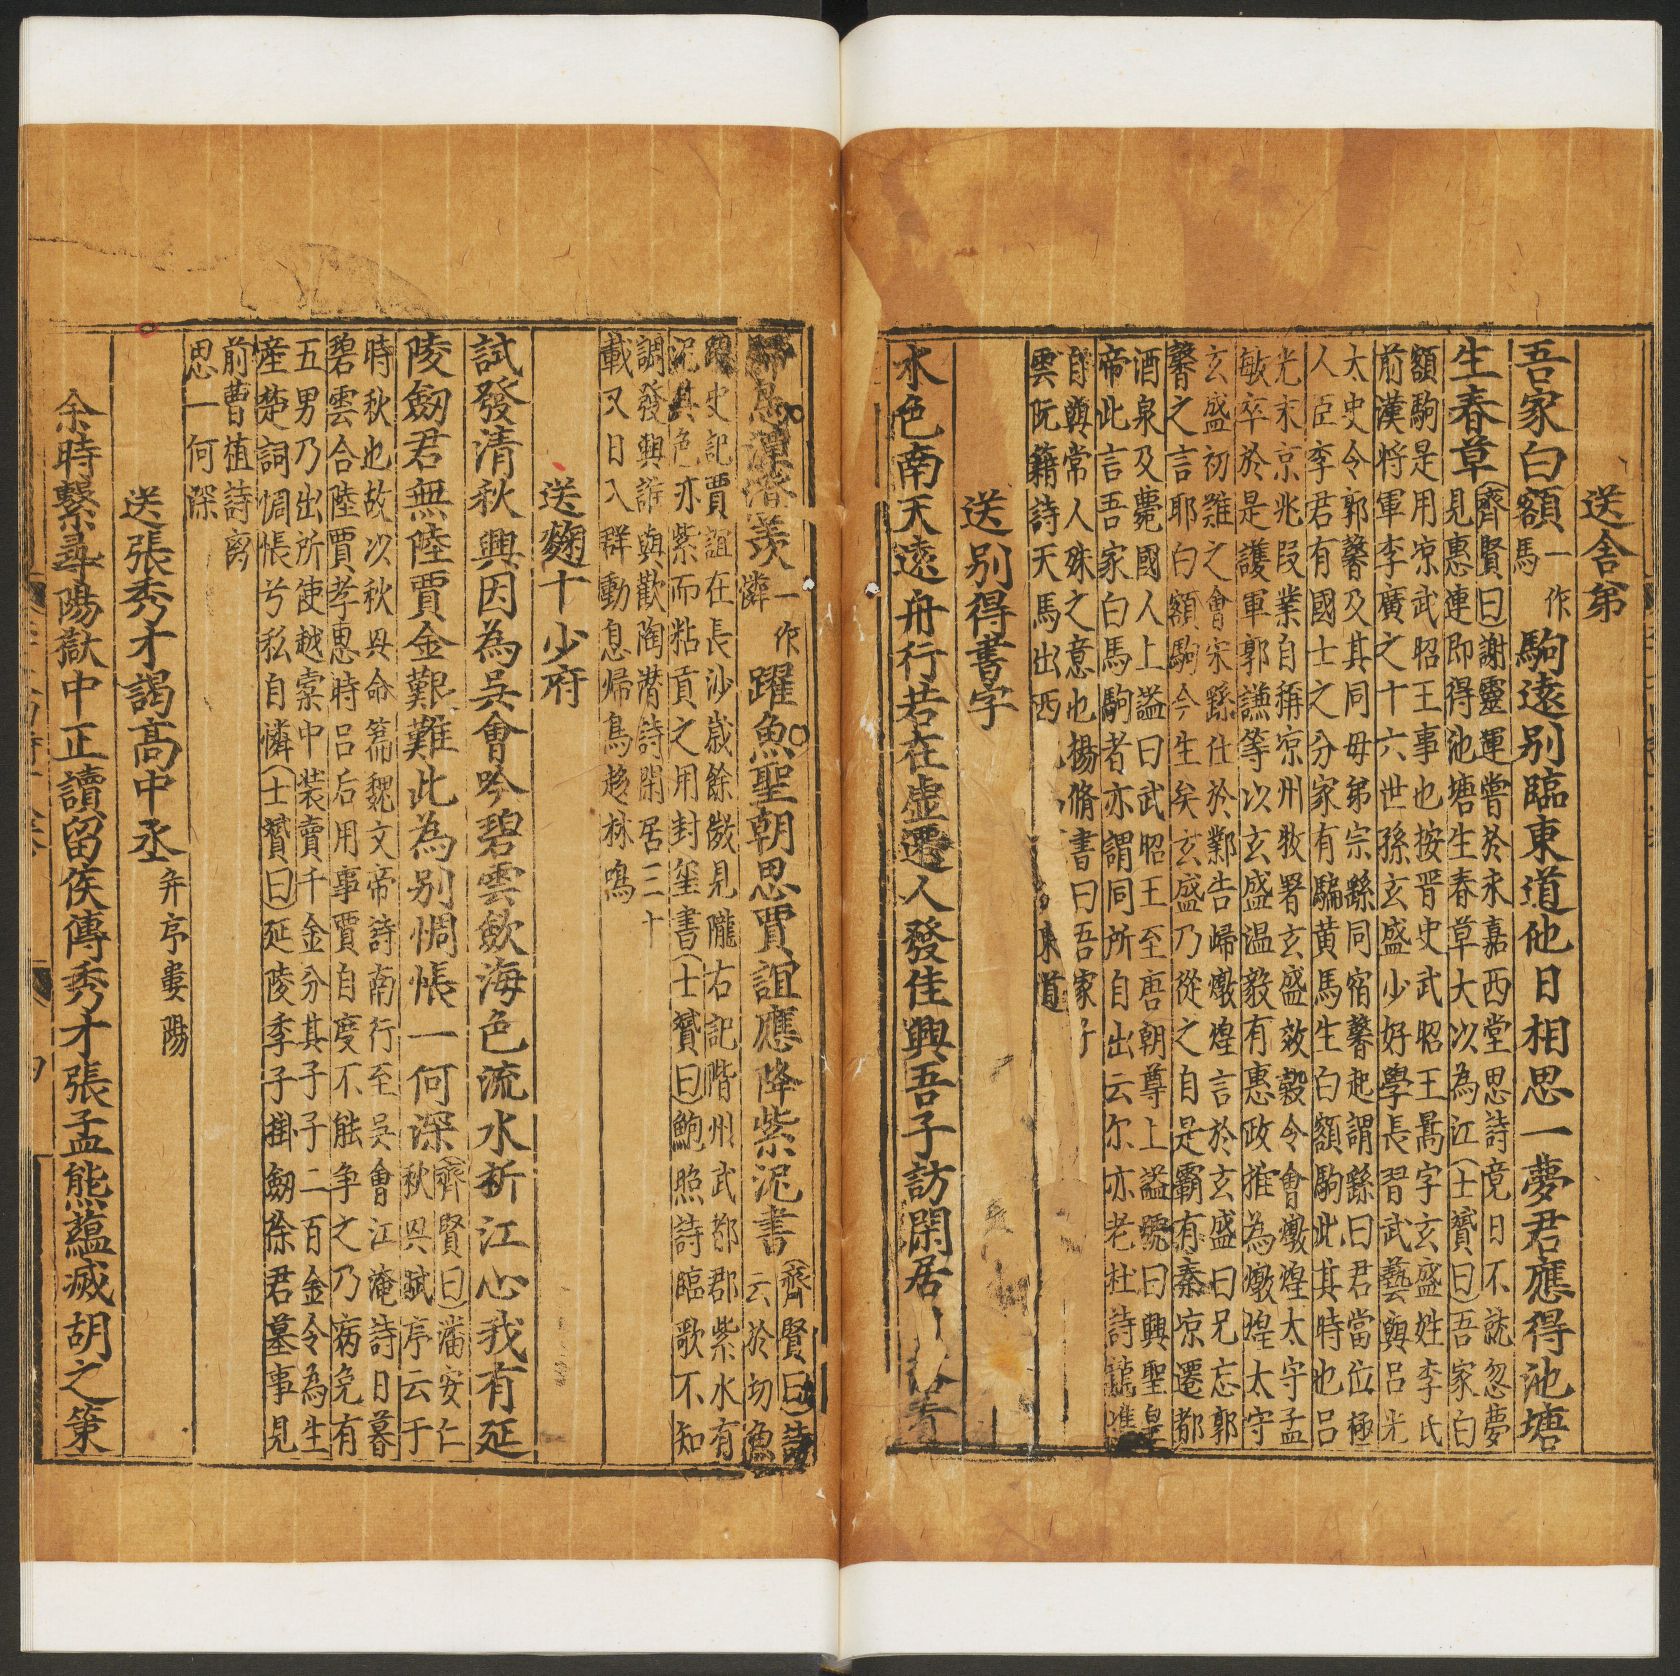 送舍弟
吾家白額一作馬駒遠別臨東道他日相思一夢君應得池塘
生春草齊賢曰謝靈運嘗於永嘉西堂思詩竟日不就忽夢
見惠連即得池塘生春草大以為江士贇曰吾家白
額駒是用凉武昭王事也按晋史武昭王暠字玄盛姓李氏
前漢将軍李廣之十六世孫玄盛少好學長習武藝與呂光
太史令郭黁及其同母弟宗繇同宿黁起謂繇曰君當位極
人臣李君有國士之分家有騧黄馬生白額駒此其時也呂
光末京兆段業自稱凉州牧署玄盛效穀令會燉煌太守孟
敏卒於是護軍郭謙等以玄盛温毅有惠政推為燉煌太守
玄盛初難之會宋繇仕於鄴告歸燉煌言於玄盛曰兄忘郭
黁之言耶白額駒今生矣玄盛乃從之自是霸有秦凉遷都
酒泉及薨國人上謚曰武昭王至唐朝尊上謚號曰興聖皇
帝此言吾家白馬駒者亦謂同所自出云尔亦老杜詩
自與常人殊之意也楊脩書曰吾家子
雲阮籍詩天馬出西 東道
送別得書字
水色南天遠舟行若在虚遷人發佳興吾子訪閑居
鳥潭落羨一作憐躍魚聖朝思賈誼應降紫泥書齊賢曰詩
云於牣魚
躍史記賈誼在長沙歲餘徵見隴右記階州武都郡紫水有
泥其色亦紫而粘貢之用封璽書士贇曰鮑照詩臨歌不知
調發興誰與歡陶潜詩閑居三十
載又日入群動息帰鳥趍林鳴
送麹十少府
試發清秋興因為吳會吟碧雲歛海色流水折江心我有延
陵劒君無陸賈金艱難此為別惆悵一何深齊賢曰潘安仁
秋興賦序云于
時秋也故以秋興命篇魏文帝詩南行至吳會江淹詩日暮
碧雲合陸賈孝惠時呂后用事賈自度不能争之乃病免有
五男乃出所使越橐中装賣千金分其子子二百金令為生
産楚詞惆悵兮私自憐士贇曰延陵季子掛劒徐君墓事見
前曹植詩离
思一何深
送張秀才謁高中丞并序婁陽
余時繫尋陽獄中正讀留侯傳秀才張孟熊蘊㓕胡之策